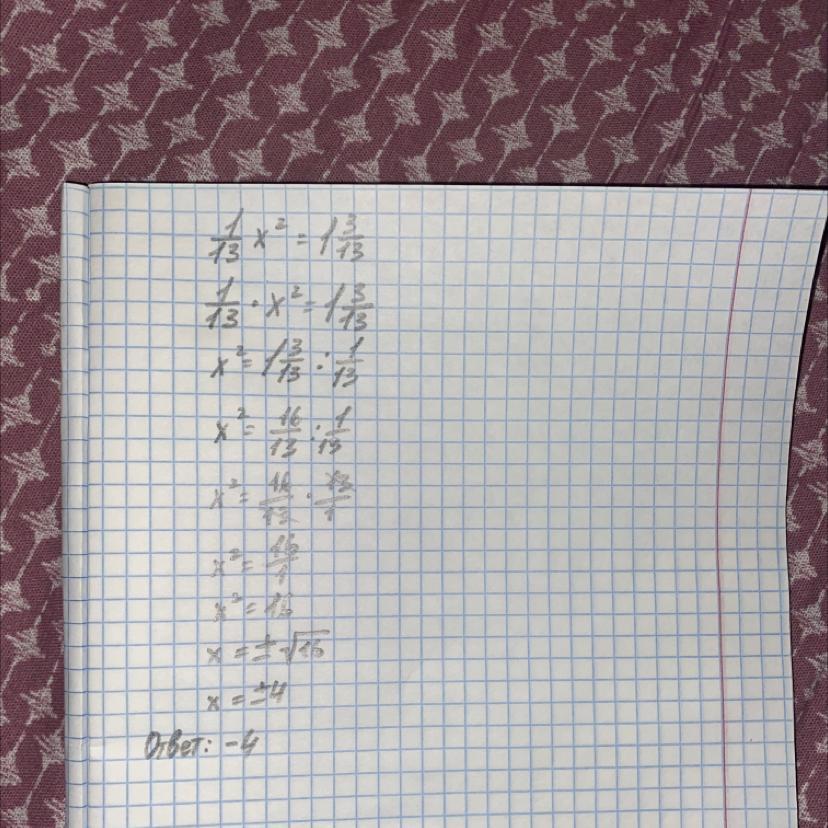 1/13 x² = 1 3/13
1/13 · x² = 1 3/13
x² = 1 3/13 : 1/13
x² = 16/13 : 1/13
x² = 16/13 · 13/1
x² = 16/1
x² = 16
x = ± √16
x = ±4
Ответ: -4